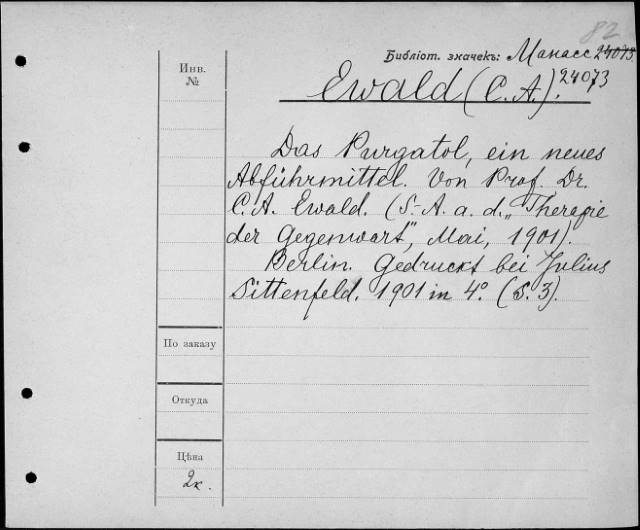 82
Библіот. значекъ: Манасс 24075.
24073
Инв.
№
Ewald (C. A.).
Das Purgatol, ein neues
Abführmittel. Von Prof. Dr.
C. A. Ewald. (S.-A. a. d. „Therapie
der Gegenwart", Mai, 1901).
Berlin. Gedruckt bei Julius
Sittenfeld. 1901 in 4º. (S. 3).
По заказу
Откуда
Цѣна
2к.